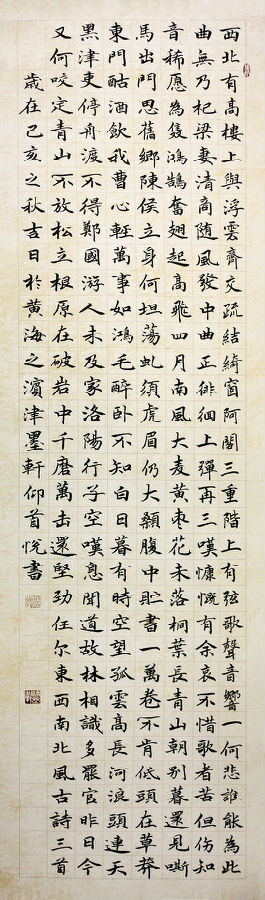 西北有高樓上與浮雲齊交疏結綺窗阿閣三重階上有弦歌聲音響一何悲誰能為此
曲無乃杞梁妻清商随風發中曲正徘徊上彈再三嘆慷慨有余哀不惜歌者苦但伤知
音稀愿為雙鴻鵠奮翅起高飛四月南風大麦黄枣花未落桐葉長青山朝別暮還見嘶
馬出門思舊鄉陳侯立身何坦蕩虬須虎眉仍大顙腹中貯書一萬卷不肯低頭在草莽
東門酤酒飲我曹心輕萬事如鴻毛醉卧不知白日暮有時空望孤雲高長河浪頭連天
黑津吏停舟渡不得鄭國游人未及家洛陽行子空嘆息聞道故林相識多罷官昨日今
又何咬定青山不放松立根原在破岩中千磨萬击還堅劲任尔東西南北風古詩三首
歲在己亥之秋吉日於黄海之濱津墨軒仰首悦書